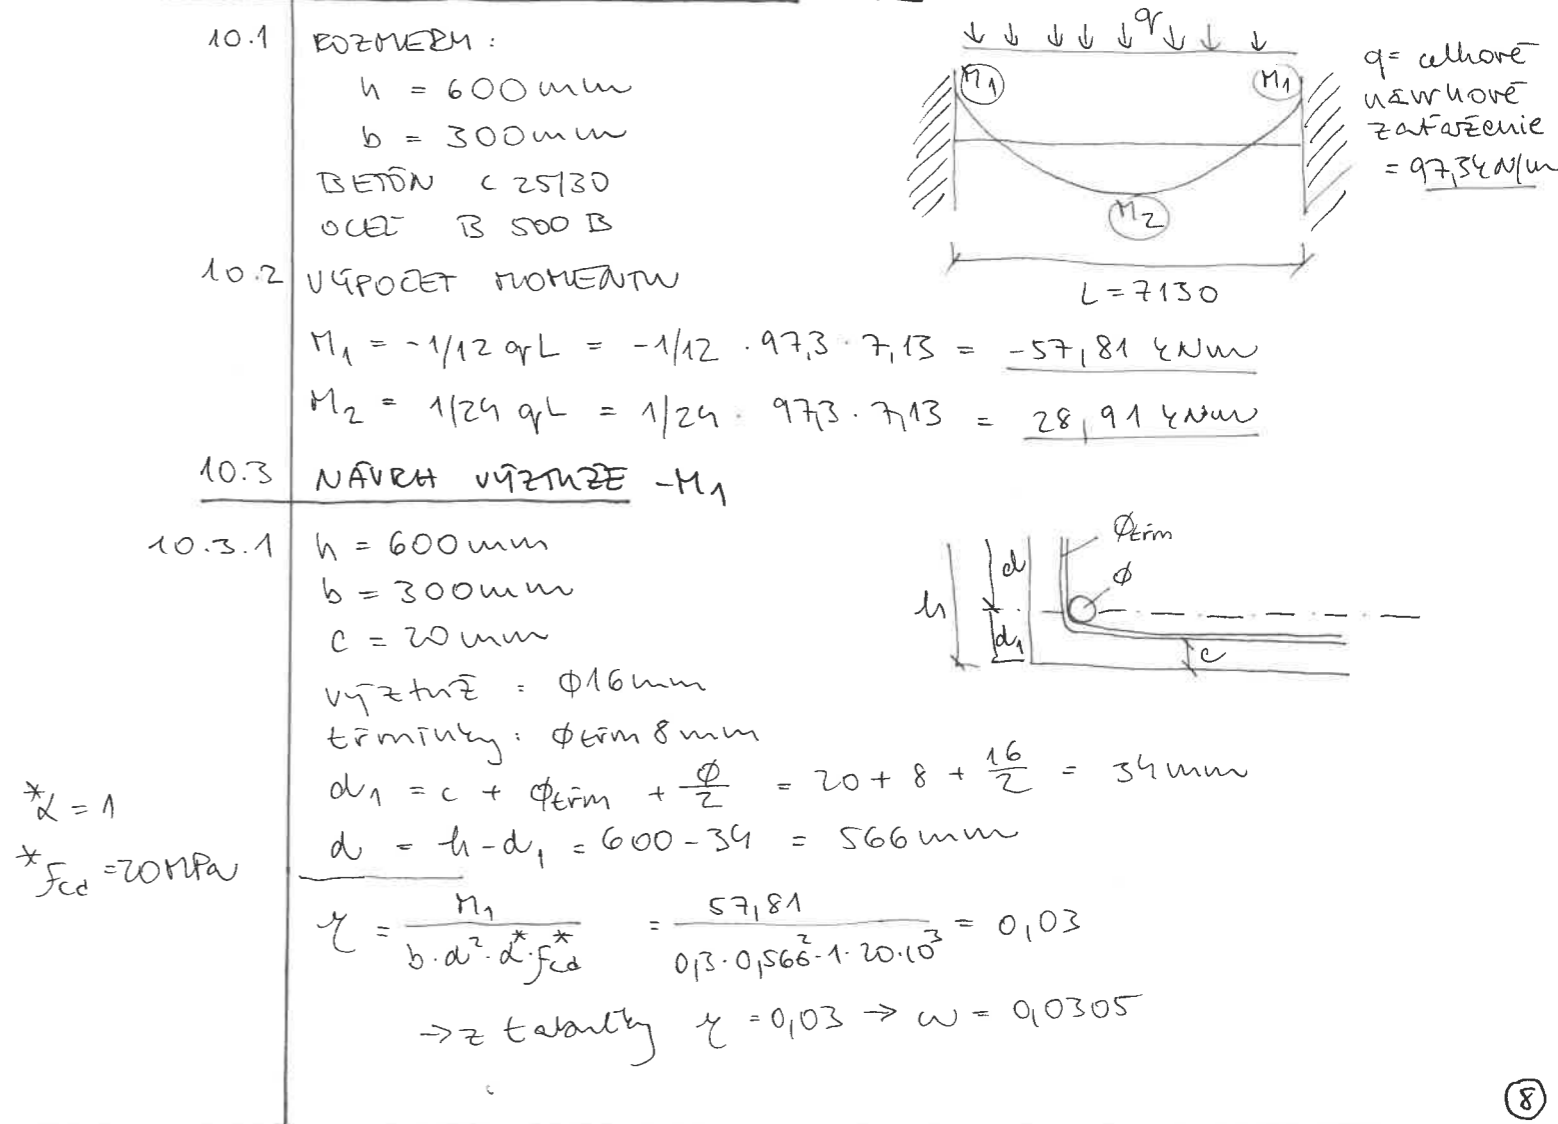 10.1 ROZMERY:
h = 600mm
b = 300mm
BETÓN C 25/30
OCEĽ B 500 B
q
M1
M1
M2
L = 7130
q = celkové
návrhové
zaťaženie
= 97,3kN/m
10.2 VÝPOČET MOMENTU
M1 = -1/12 qL = -1/12 · 97,3 · 7,13 = -57,81 kNm
M2 = 1/24 qL = 1/24 · 97,3 · 7,13 = 28,91 kNm
10.3 NÁVRH VÝZTUŽE -M1
10.3.1 h = 600mm
b = 300mm
c = 20mm
výztuž : φ16mm
třmínky: φtřm 8mm
d1 = c + φtřm + φ/2 = 20 + 8 + 16/2 = 34mm
d = h-d1 = 600-34 = 566mm
φtřm
φ
h
d
d1
c
*α = 1
*fcd = 20MPa
η = M1/(b·d²·α*·fcd*) = 57,81/(0,3·0,566²·1·20·10³) = 0,03
→ z tabulky η = 0,03 → ω = 0,0305
8